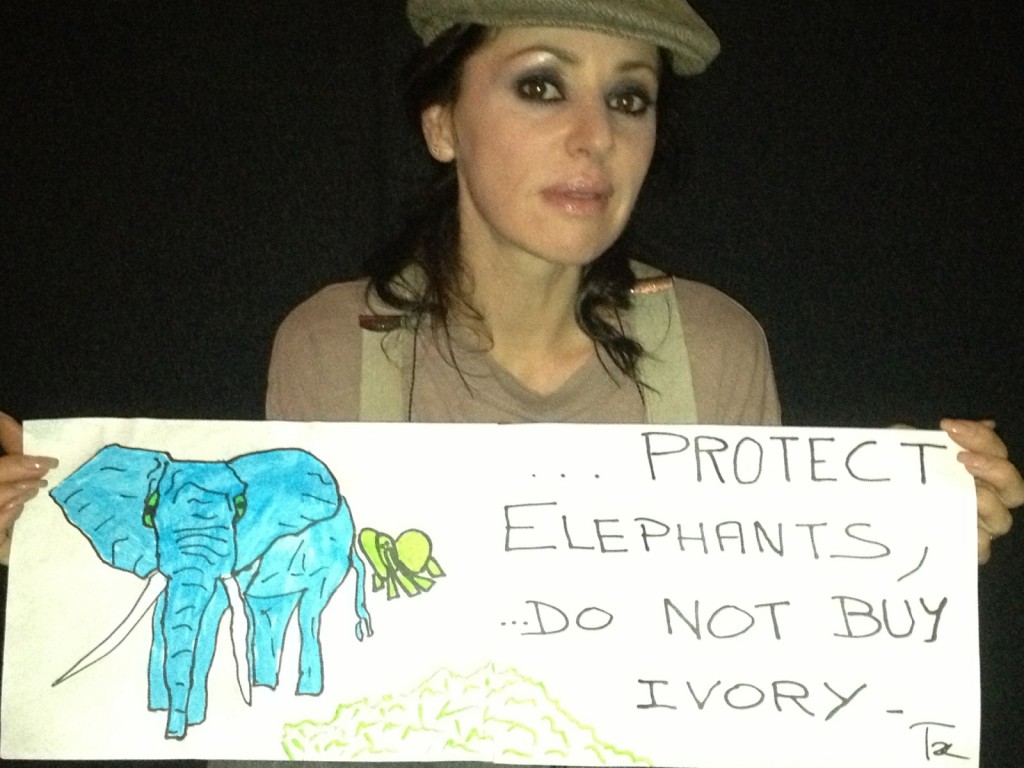 ... PROTECT
ELEPHANTS,
...DO NOT BUY
IVORY -